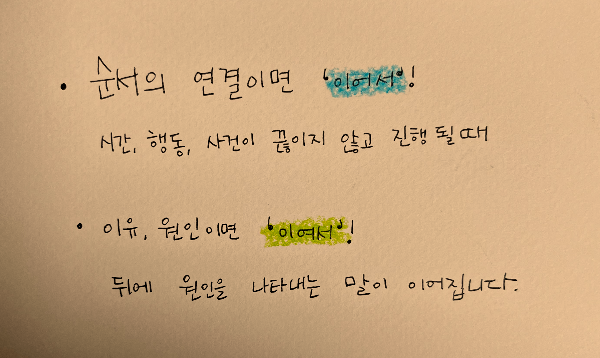 • 순서의 연결이면 '이어서'!
시간, 행동, 사건이 끊이지 않고 진행될때
• 이유, 원인이면 '이여서'!
뒤에 원인을 나타내는 말이 이어집니다.